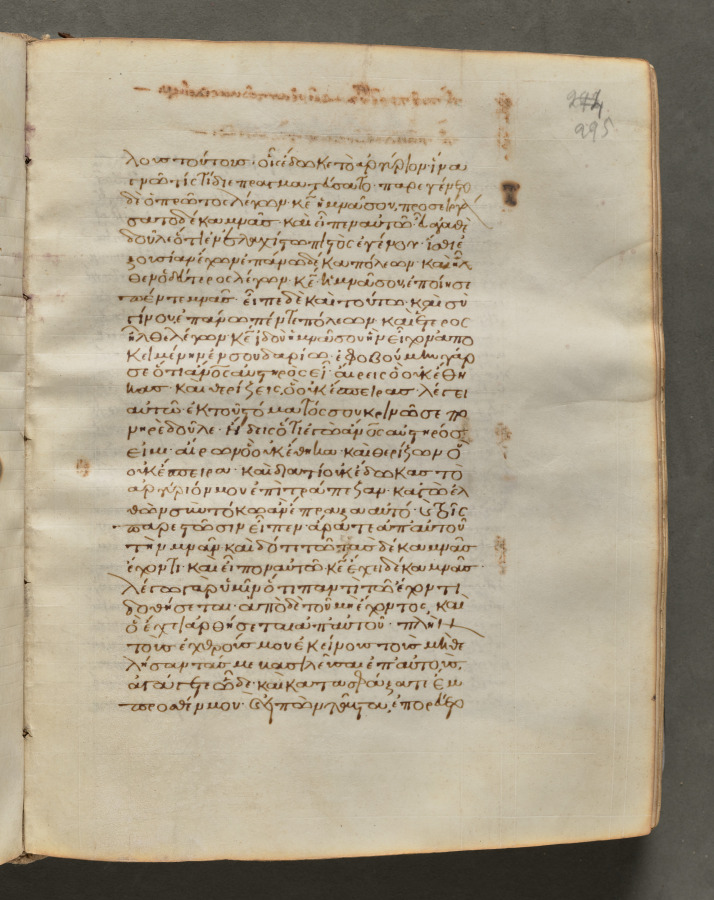 244
295
λους τούτους· οἷς ἔδωκε τὸ ἀργύριον· ἵνα
γνῶ τίς τί διεπραγματεύσατο· παρεγένετο
δὲ ὁ πρῶτος λέγων· κε ἡ μνᾶ σου, προσειργά
σατο δέκα μνᾶς· καὶ εἶπεν αὐτῶ· εὖ ἀγαθὲ
δοῦλε· ὅτι ἐν ἐλαχίστω πιστὸς ἐγένου· ἴσθι ἐ
ξουσίαν ἔχων ἐπάνω δέκα πόλεων· καὶ ἦλ
θεν ὁ δεύτερος λέγων· κε ἡ μνᾶ σου, ἐποίησε
πέντε μνᾶς· εἶπε δὲ καὶ τούτω· καὶ σὺ
γίνου, ἐπάνω πέντε πόλεων· καὶ ἕτερος
ἦλθε λέγων· κε ἰδοὺ ἡ μνᾶ σου ἣν εἶχον ἀπο
κειμένην ἐν σουδαρίω· ἐφοβούμην γάρ
σε ὅτι ἄνος αὐστηρὸς εἶ· αἴρεις ὃ οὐκ ἔθη
κας· καὶ θερίζεις, ὃ οὐκ ἔσπειρας· λέγει
αὐτῶ· ἐκ τοῦ στόματός σου κρίνω σε πο
νηρὲ δοῦλε· ἤδεις ὅτι ἐγὼ ἄνος αὐστηρός
εἰμι· αἴρων ὃ οὐκ ἔθηκα· καὶ θερίζων ὃ
οὐκ ἔσπειρα· καὶ διατί οὐκ ἔδωκας τὸ
ἀργύριόν μου ἐπὶ τράπεζαν· καὶ ἐγὼ ἐλ
θὼν σὺν τόκω ἂν ἔπραξα αὐτό· καὶ τοῖς
παρεστῶσιν εἶπεν· ἄρατε ἀπ' αὐτοῦ
τὴν μνᾶν καὶ δότε τῶ τὰς δέκα μνᾶς
ἔχοντι· καὶ εἶπον αὐτῶ· κε ἔχει δέκα μνᾶς·
λέγω γὰρ ὑμῖν ὅτι παντὶ τῶ ἔχοντι
δοθήσεται· ἀπὸ δὲ τοῦ μὴ ἔχοντος, καὶ
ὃ ἔχει ἀρθήσεται ἀπ' αὐτοῦ· πλὴν
τοὺς ἐχθρούς μου ἐκείνους τοὺς μὴ θε
λήσαντάς με βασιλεῦσαι ἐπ' αὐτούς,
ἀγάγετε ὧδε· καὶ κατασφάξατε ἔμ
προσθέν μου· καὶ εἰπὼν ταῦτα, ἐπορεύετο